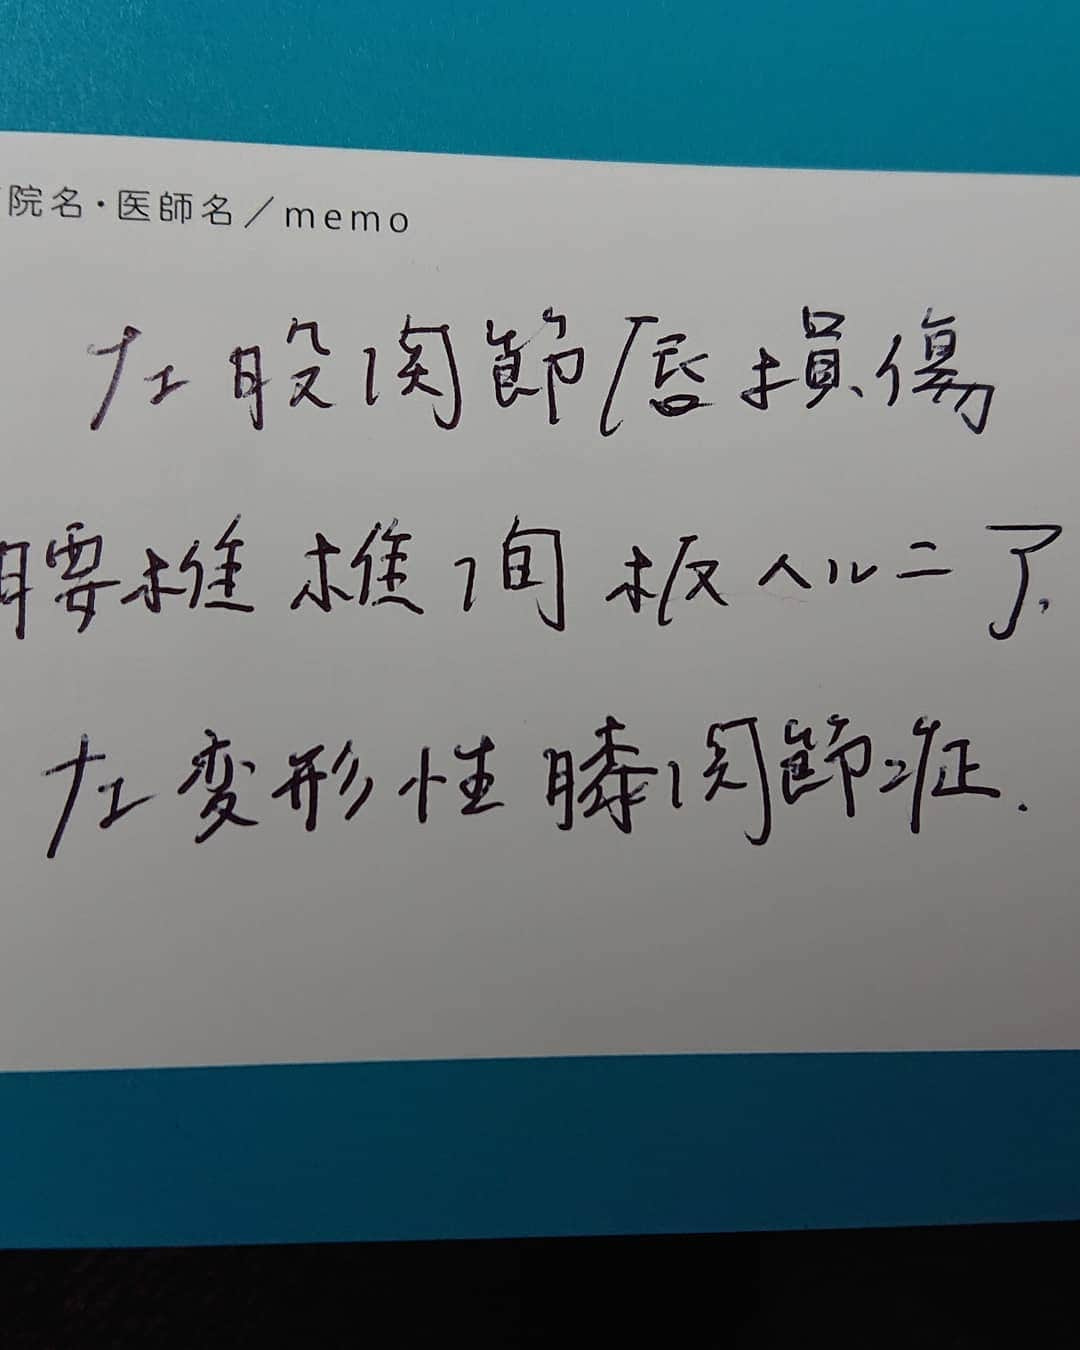 院名・医師名／memo
左股関節唇損傷
腰椎椎間板ヘルニア.
左変形性膝関節症.